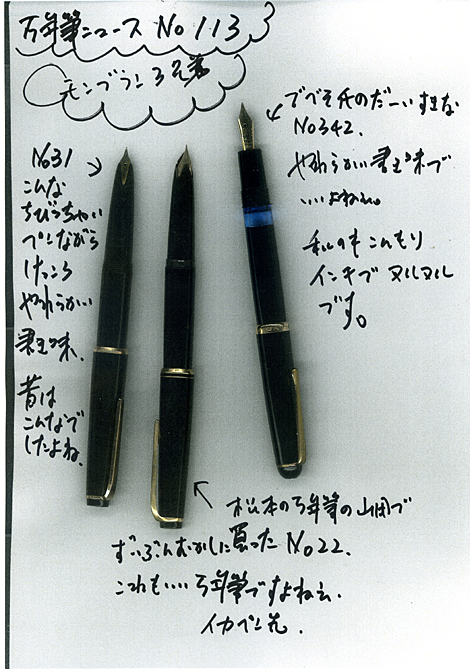 万年筆ニュース No 113
モンブラン3兄弟
でべそ氏のだーいすきな
No342.
やわらかい書き味で
いいよねえ。
私のもこんもり
インキでヌルヌル
です。
No31
こんな
ちびっちゃい
ペンながら
けっこう
やわらかい
書き味.
昔は
こんなで
したよね.
松本の万年筆の山田で
ずいぶんむかしに買った No22.
これもいい万年筆ですよねえ.
イカペン先.